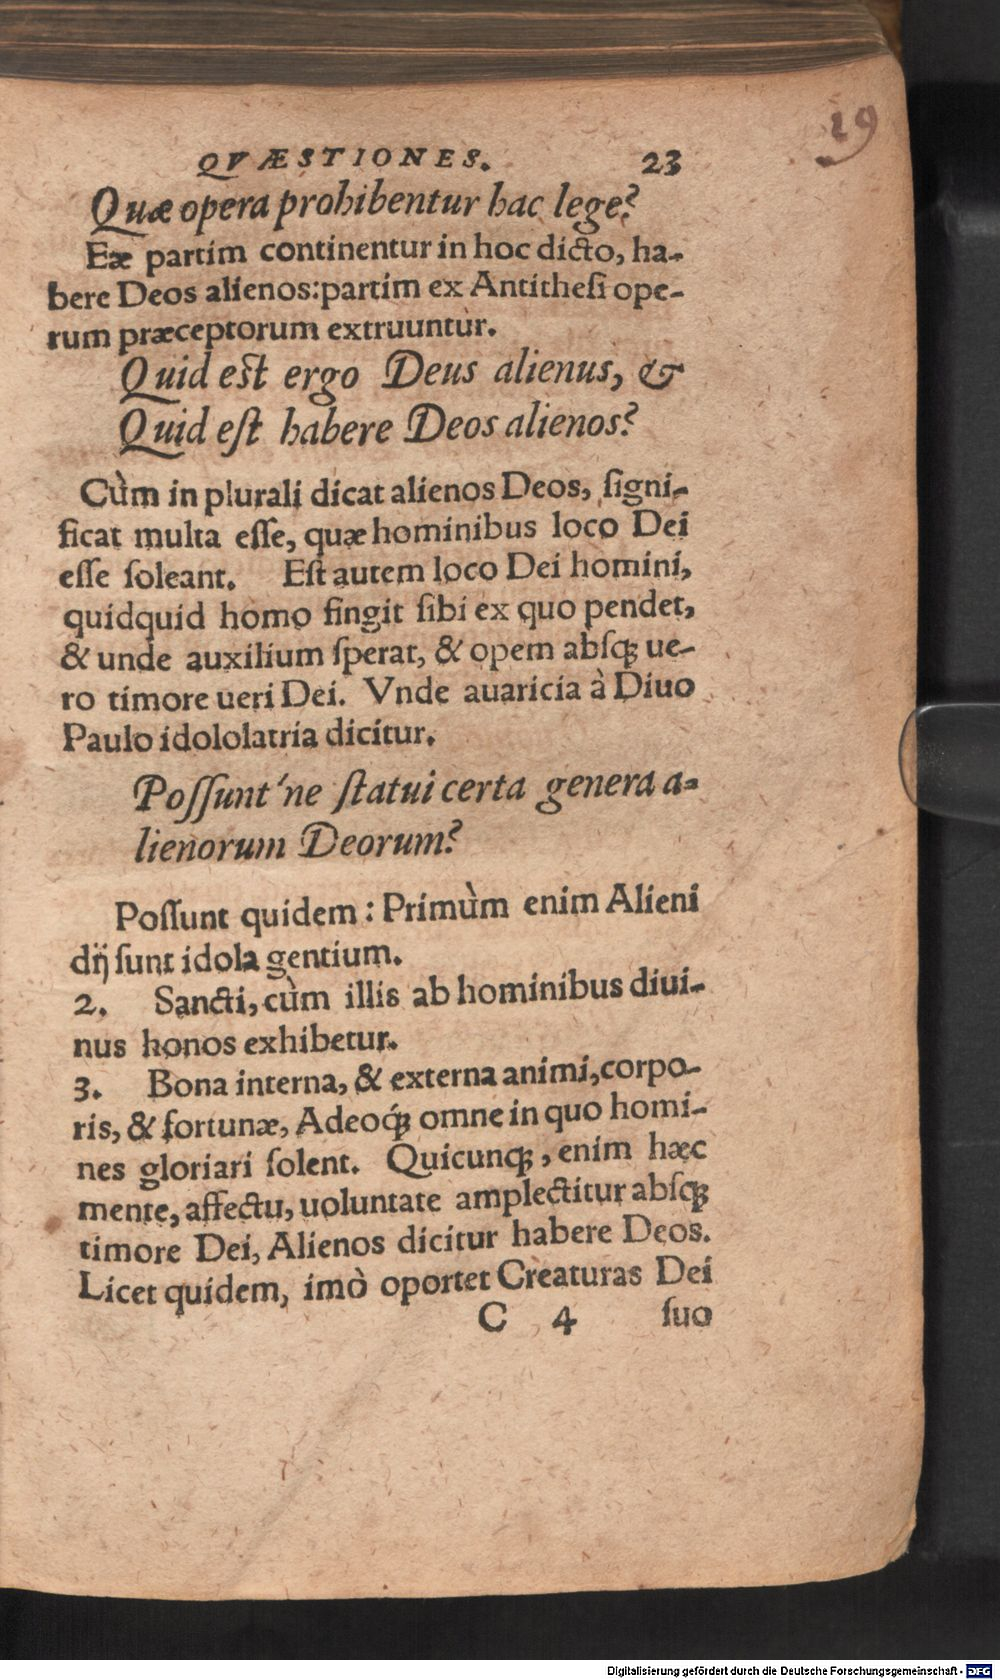 19
QVÆSTIONES. 23
Quæ opera prohibentur hac lege?
Eæ partim continentur in hoc dicto, ha-
bere Deos alienos: partim ex Antithesi ope-
rum præceptorum extruuntur.
Quid est ergo Deus alienus, &
Quid est habere Deos alienos?
Cùm in plurali dicat alienos Deos, signi-
ficat multa esse, quæ hominibus loco Dei
esse soleant. Est autem loco Dei homini,
quidquid homo fingit sibi ex quo pendet,
& unde auxilium sperat, & opem absq; ue-
ro timore ueri Dei. Vnde auaricia à Diuo
Paulo idololatria dicitur.
Possunt'ne statui certa genera a-
lienorum Deorum?
Possunt quidem: Primùm enim Alieni
dij sunt idola gentium.
2. Sancti, cùm illis ab hominibus diui-
nus honos exhibetur.
3. Bona interna, & externa animi, corpo-
ris, & fortunæ, Adeoq́; omne in quo homi-
nes gloriari solent. Quicunq;, enim hæc
mente, affectu, uoluntate amplectitur absq;
timore Dei, Alienos dicitur habere Deos.
Licet quidem, imò oportet Creaturas Dei
C 4 suo
Digitalisierung gefördert durch die Deutsche Forschungsgemeinschaft - DFG